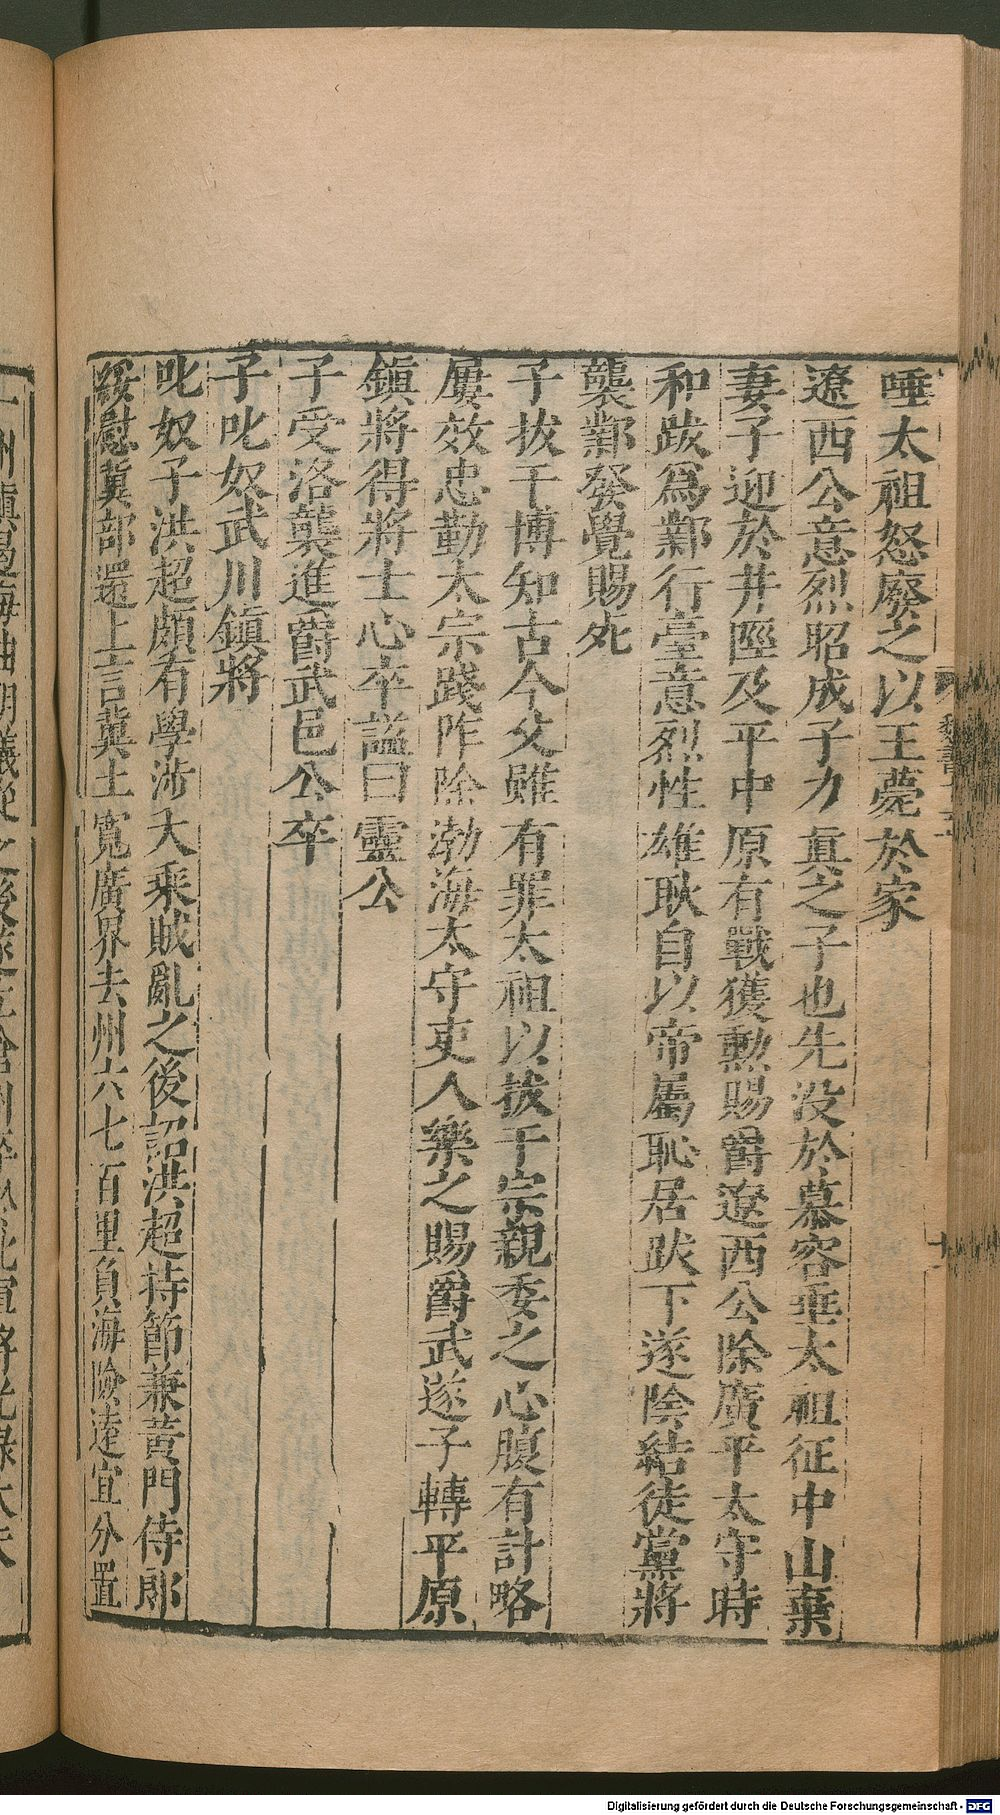 唾太祖怒廢之以王薨於家
遼西公意烈昭成子力眞之子也先没於慕容垂太祖征中山棄
妻子迎於井陘及平中原有戰獲勲賜爵遼西公除廣平太守時
和跋爲鄴行臺意烈性雄耿自以帝屬恥居跋下遂陰結徒黨將
襲鄴發覺賜死
子拔干博知古今父雖有罪太祖以拔干宗親委之心腹有計略
屢效忠勤太宗踐阼除渤海太守吏人樂之賜爵武遂子轉平原
鎮將得將士心卒諡曰靈公
子受洛襲進爵武邑公卒
子叱奴武川鎮將
叱奴子洪超頗有學渉大乘賊亂之後詔洪超持節兼黃門侍郎
綏慰冀部還上言冀土寬廣界去州六七百里負海險遠宜分置
Digitalisierung gefördert durch die Deutsche Forschungsgemeinschaft - DFG